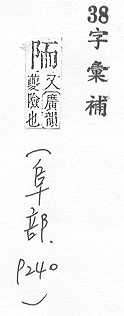 38字彙補
陑又〔廣韻〕
夔險也
(阜部. P240)